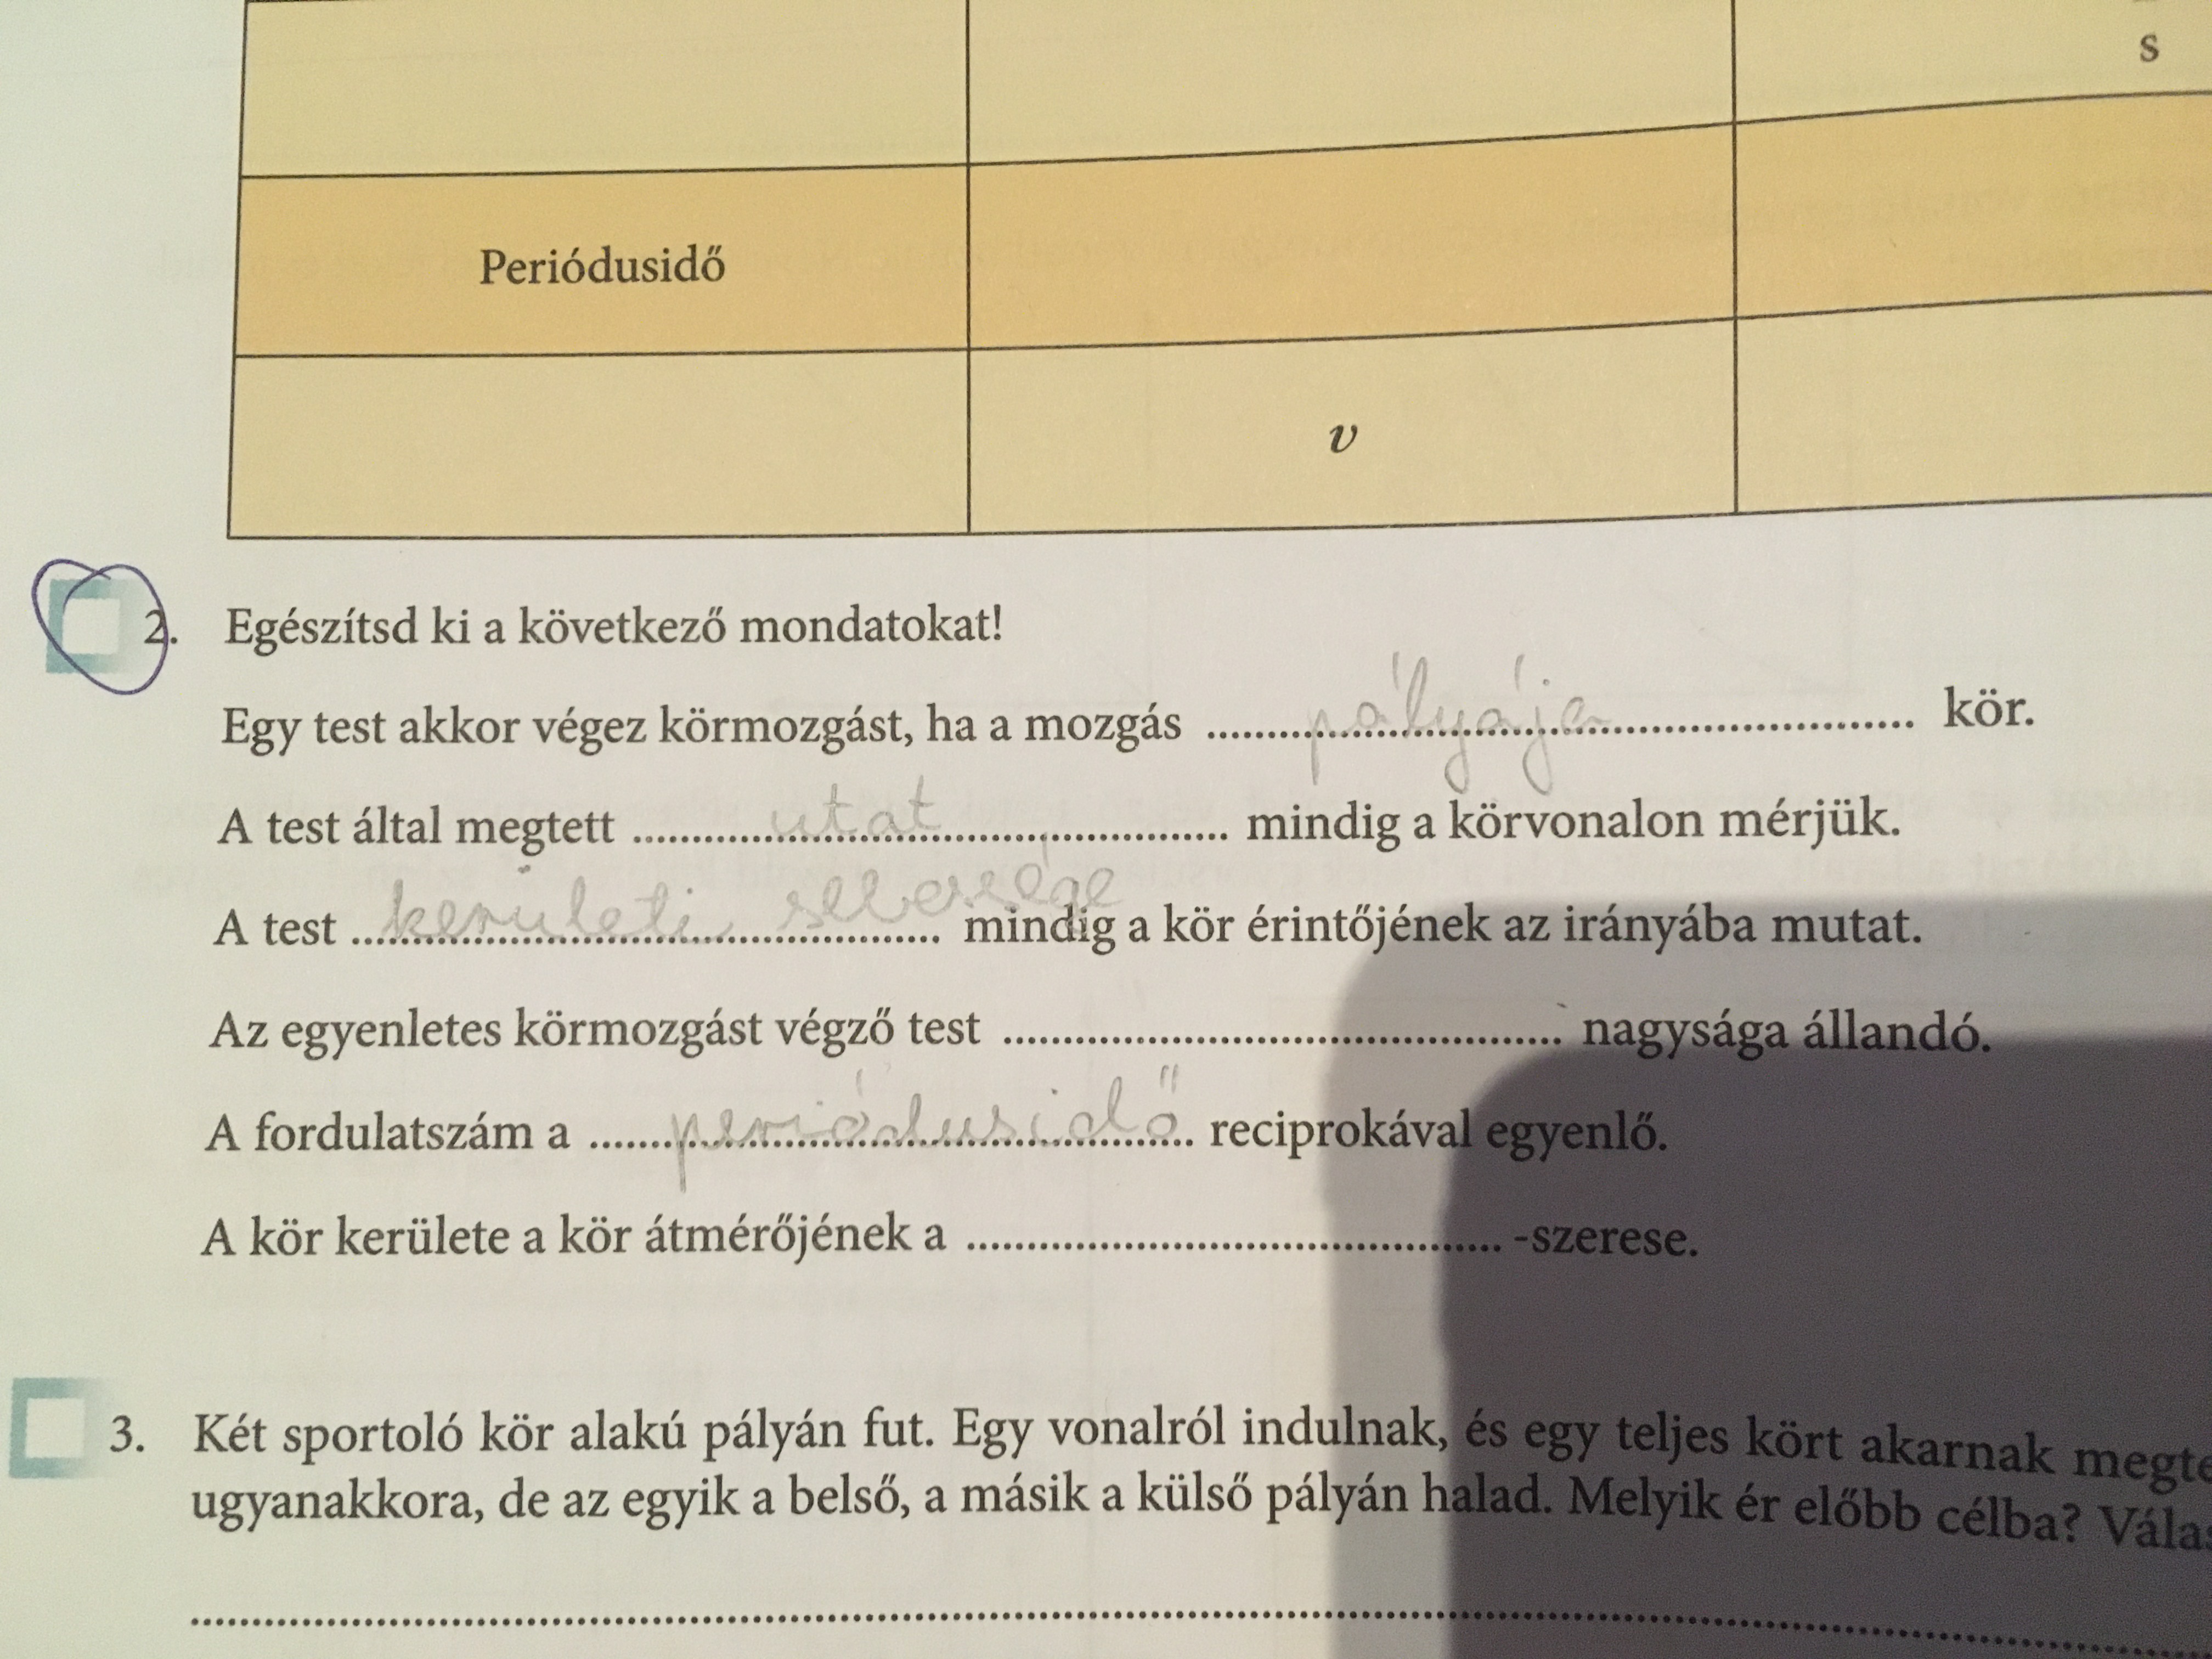 s
Periódusidő
v
2. Egészítsd ki a következő mondatokat!
Egy test akkor végez körmozgást, ha a mozgás ..... pályája ..... kör.
A test által megtett ..... utat ..... mindig a körvonalon mérjük.
A test ..... kerületi sebessége ..... mindig a kör érintőjének az irányába mutat.
Az egyenletes körmozgást végző test ..... nagysága állandó.
A fordulatszám a ..... periódusidő ..... reciprokával egyenlő.
A kör kerülete a kör átmérőjének a ..... -szerese.
3. Két sportoló kör alakú pályán fut. Egy vonalról indulnak, és egy teljes kört akarnak megte
ugyanakkora, de az egyik a belső, a másik a külső pályán halad. Melyik ér előbb célba? Válas